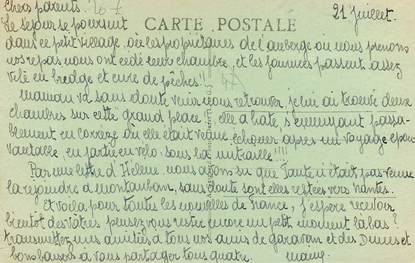 Chers parents. 21 juillet.
CARTE POSTALE
Le séjour se poursuit
dans ce petit village, où les propriétaires de l'auberge où nous prenons
nos repas nous ont cédé leur chambre, et les journées passent assez
vite en bredge et cure de pêches!!
maman va sans doute venir nous retrouver, je lui ai trouvé deux
chambres sur cette grand place, elle a hâte, s'ennuyant passa-
blement en Corrèze où elle était venue échouer après un voyage épou-
vantable, en partie en vélo sous la mitraille!!!
Par une lettre d'Hélène nous avons su que Tante n'était pas venue
la rejoindre à Montauban, sans doute sont elles restées vers Nantes.
Et voilà pour toutes les nouvelles de France, j'espère recevoir
bientôt des vôtres pensez vous rester encore un petit moment là bas?
transmettez mes amitiés à tous nos amis de Garavan et des
bons baisers à vous partager tous quatre.